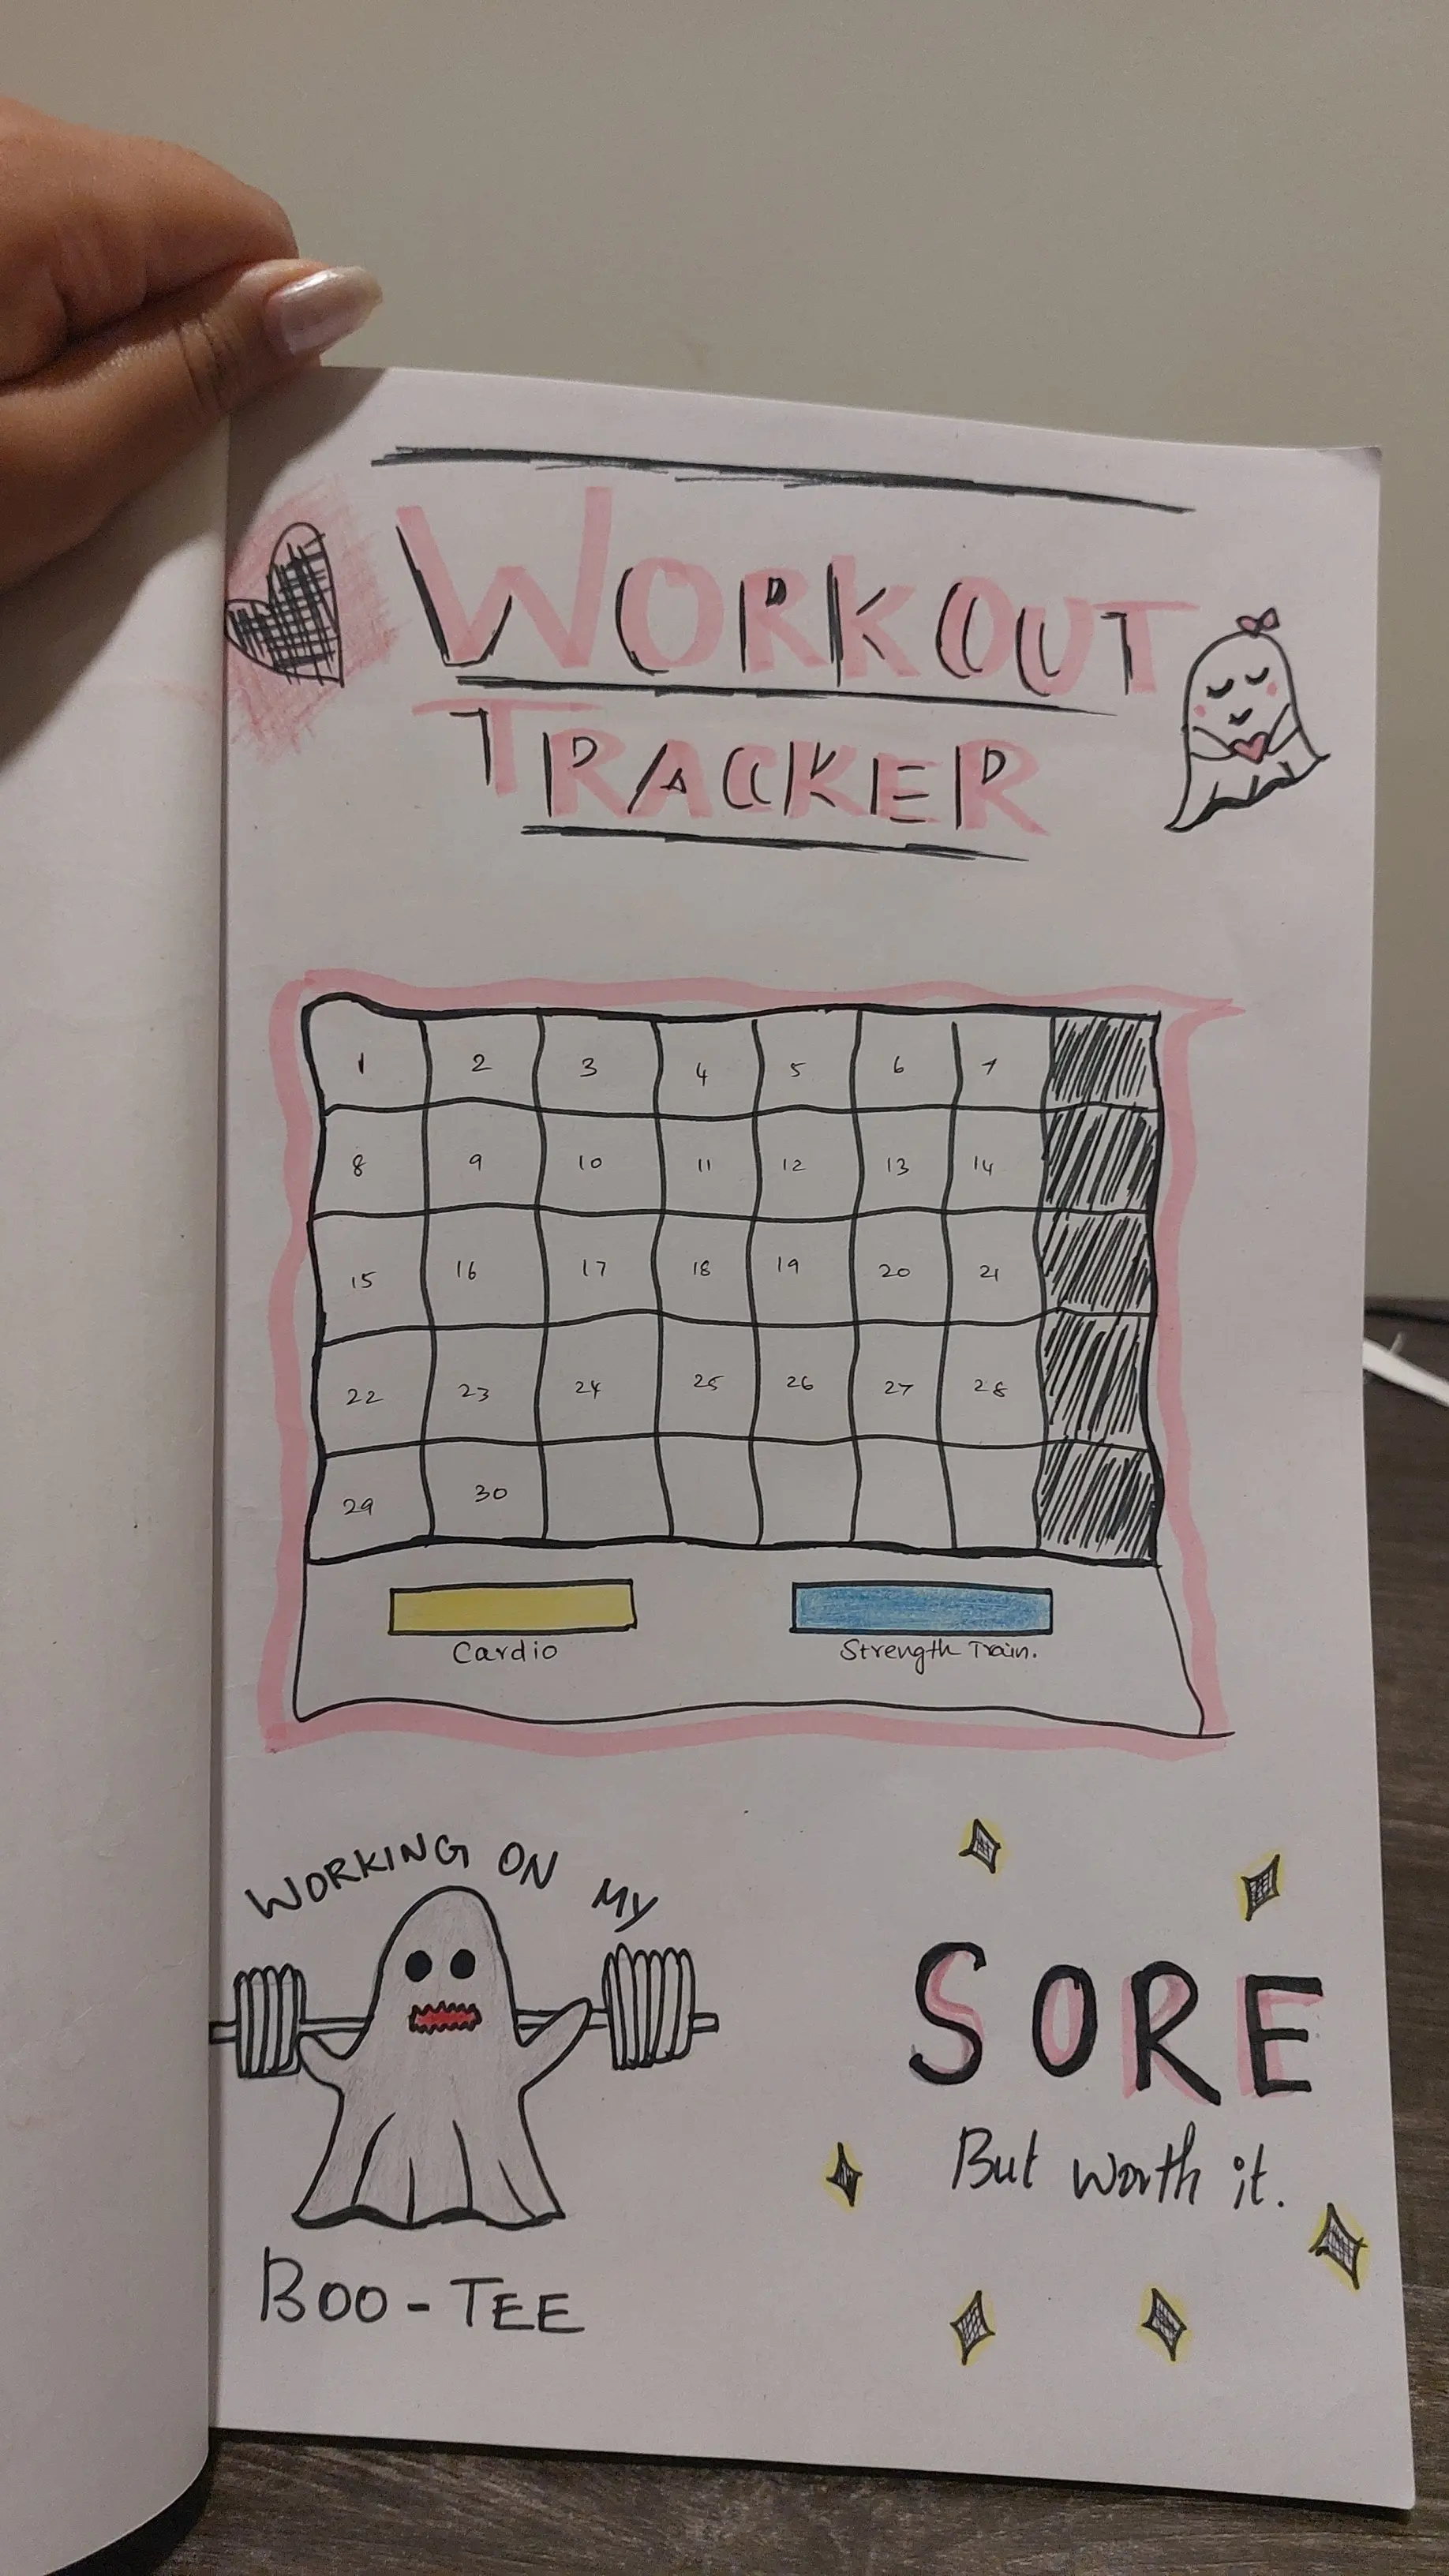 WORKOUT
TRACKER
1 2 3 4 5 6 7
8 9 10 11 12 13 14
15 16 17 18 19 20 21
22 23 24 25 26 27 28
29 30
Cardio Strength Train.
WORKING ON MY
BOO-TEE
SORE
But worth it.